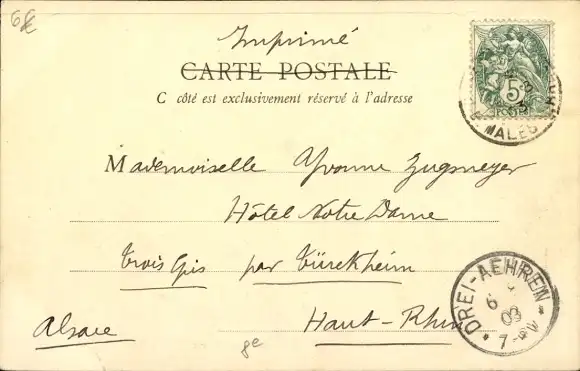 6€
Imprimé
CARTE POSTALE
C côté est exclusivement réservé à l'adresse
5
MALES
Mademoiselle Yvonne Zugmeyer
Hôtel Notre Dame
Trois Epis par Türckheim
Alsace Haut-Rhin
8e
DREI-AEHREN
6
03